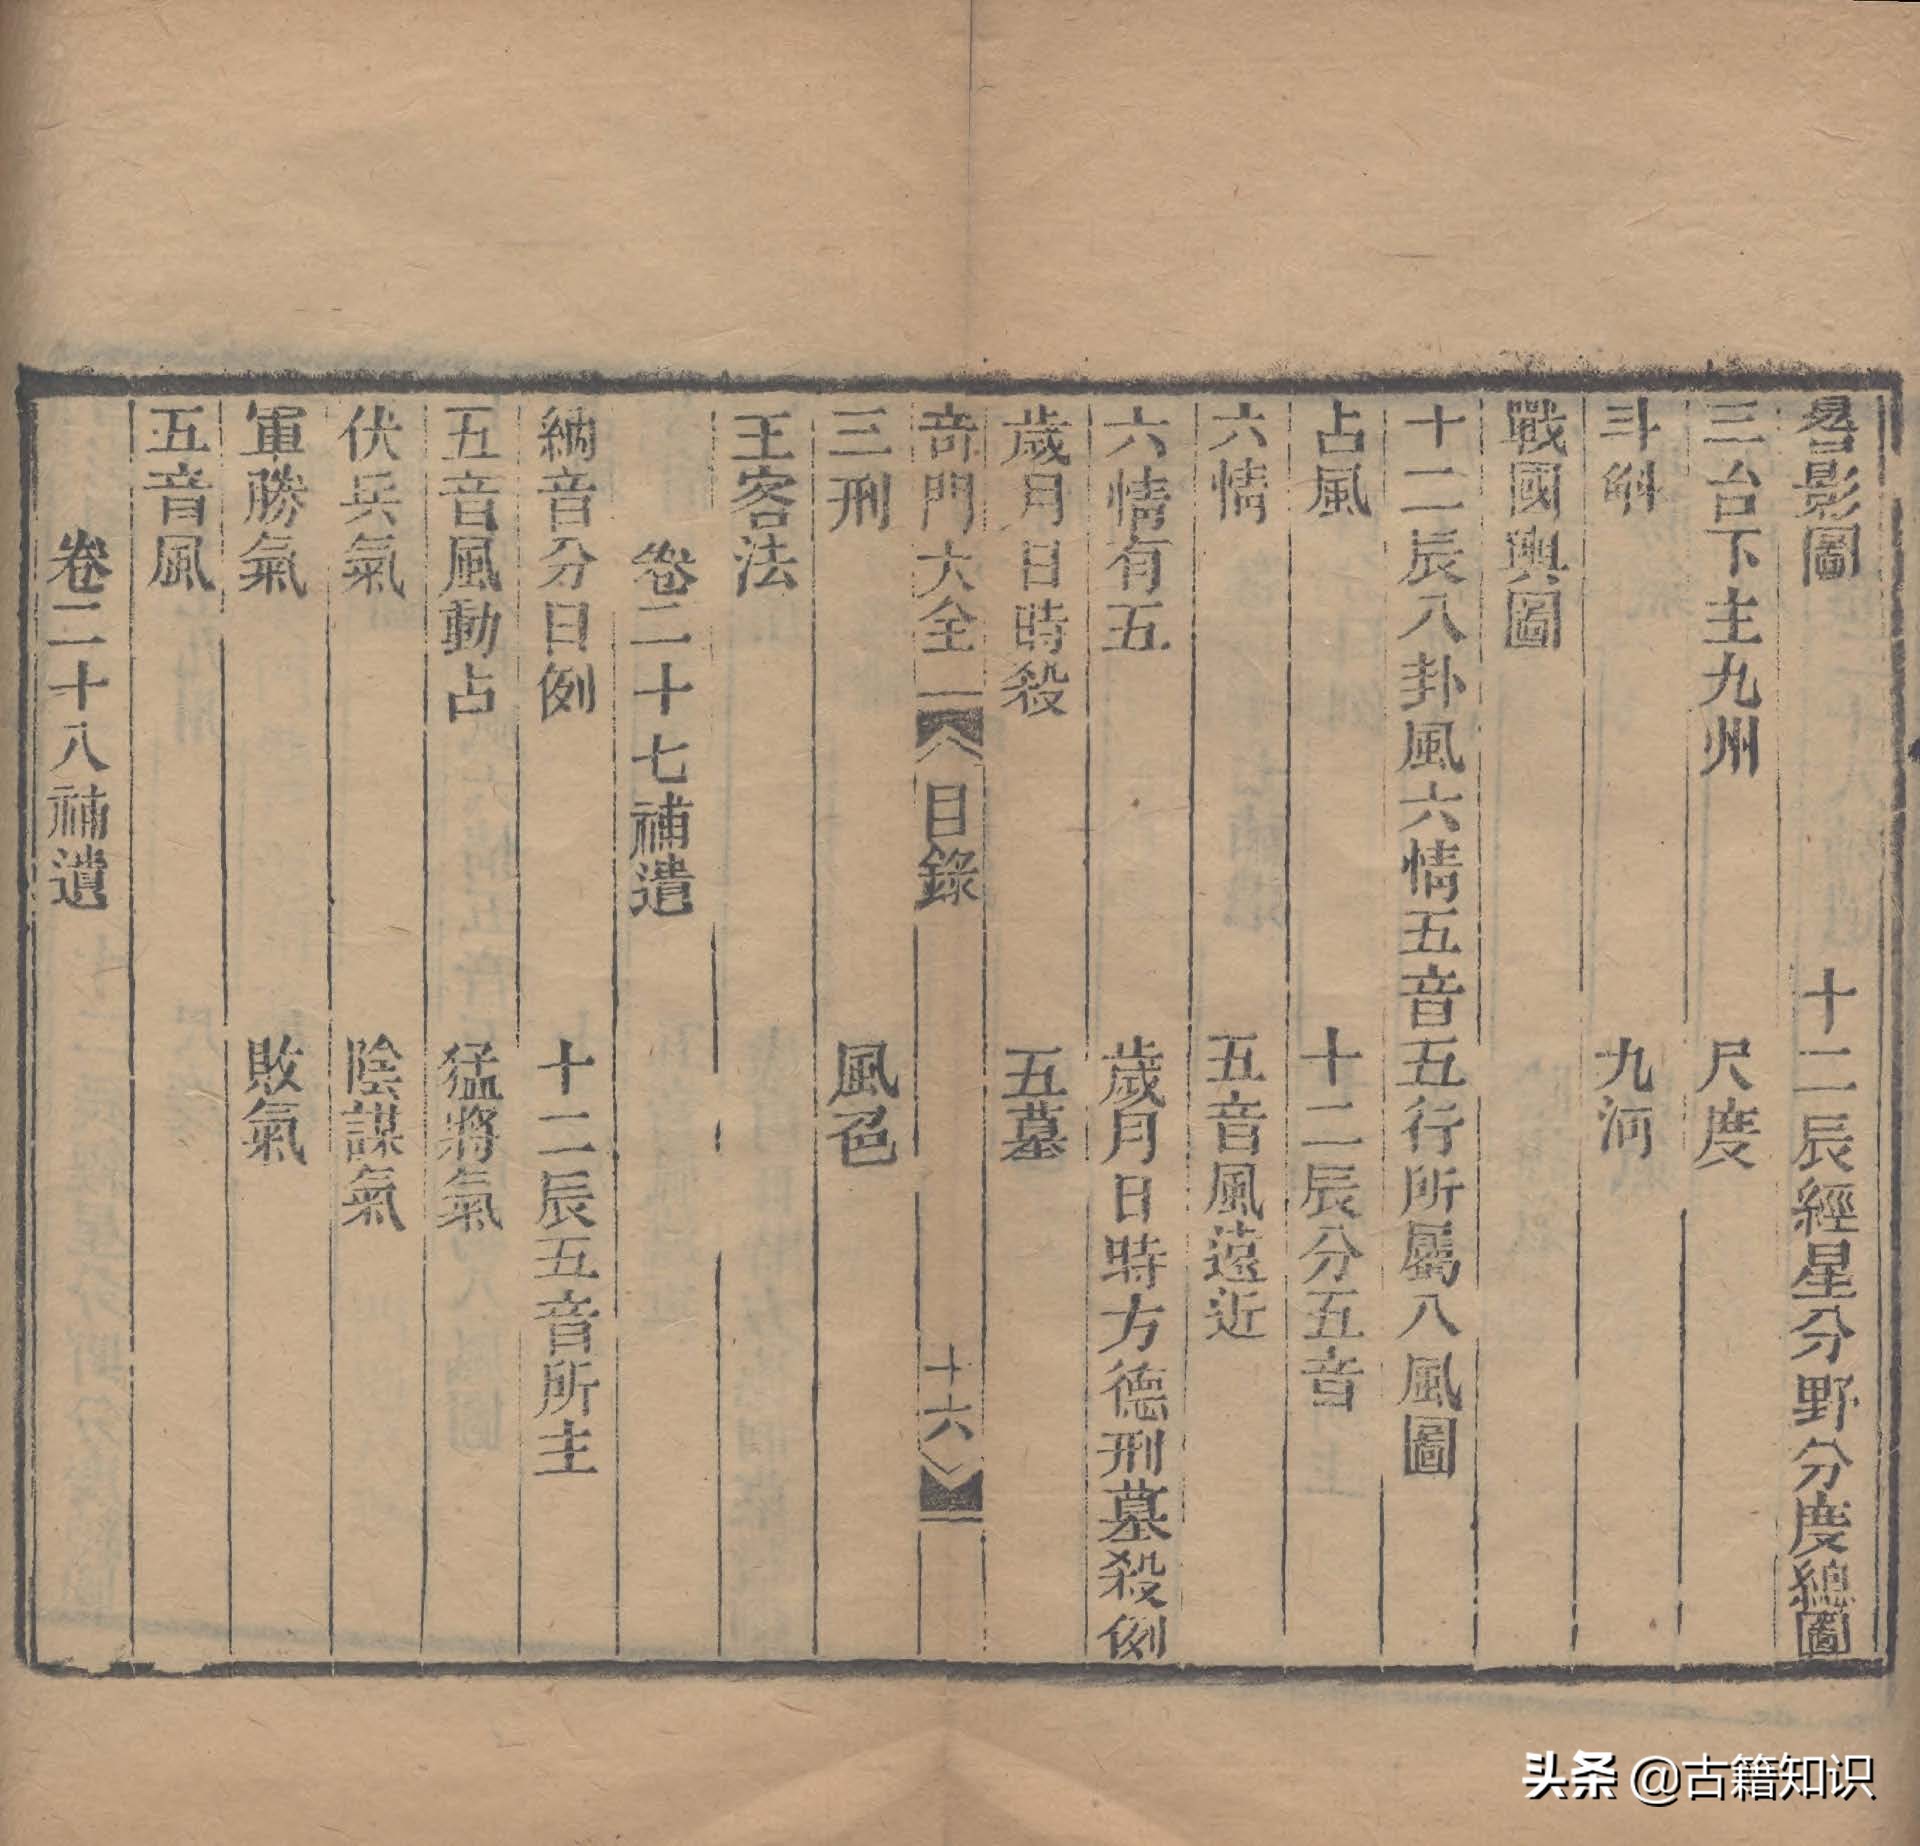 晷影圖　十二辰經星分野分度總圖
三台下主九州　尺度
斗斛　九河
戰國輿圖
十二辰八卦風六情五音五行所屬八風圖
占風　十二辰分五音
六情　五音風遠近
六情有五　歲月日時方德刑墓殺例
歲月日時殺　五墓
奇門大全　目錄　十六
三刑　風色
王客法
卷二十七補遺
納音分日例　十二辰五音所主
五音風動占　猛將氣
伏兵氣　陰謀氣
軍勝氣　敗氣
五音風
卷二十八補遺
头条 @古籍知识